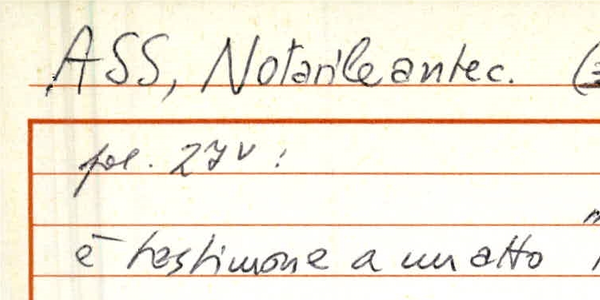 ASS, Notarile antec. (
fol. 27v:
è testimone a un atto